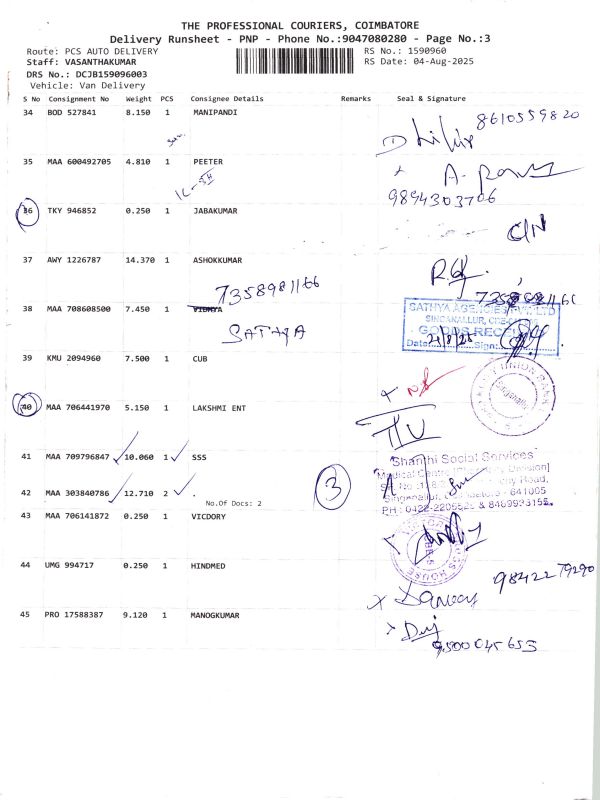 THE PROFESSIONAL COURIERS, COIMBATORE
Delivery Runsheet - PNP - Phone No.:9047080280 - Page No.:3
Route: PCS AUTO DELIVERY
RS No.: 1590960
Staff: VASANTHAKUMAR
RS Date: 04-Aug-2025
DRS No.: DCJB159096003
Vehicle: Van Delivery
S No Consignment No Weight PCS Consignee Details Remarks Seal & Signature
34 BOD 527841 8.150 1 MANIPANDI
8610559820
35 MAA 600492705 4.810 1 PEETER
9894303706
36 TKY 946852 0.250 1 JABAKUMAR
C/N
37 AWY 1226787 14.370 1 ASHOKKUMAR
7358981166
38 MAA 708608500 7.450 1 VIDHYA
SATHYA
SATHYA AGENCIES PVT LTD
SINGANALLUR, CBE-
GOODS RECEIVED
Date: Sign:
39 KMU 2094960 7.500 1 CUB
UNION BANK
40 MAA 706441970 5.150 1 LAKSHMI ENT
41 MAA 709796847 10.060 1 SSS
Shanthi Social Services
Medical Centre Division]
Road,
Singanallur, - 641005
PH: 0422-2206 & 8489933155
42 MAA 303840786 12.710 2 .
No.Of Docs: 2
3
43 MAA 706141872 0.250 1 VICDORY
HOUSE
44 UMG 994717 0.250 1 HINDMED
98422 79290
45 PRO 17588387 9.120 1 MANOGKUMAR
9500045653